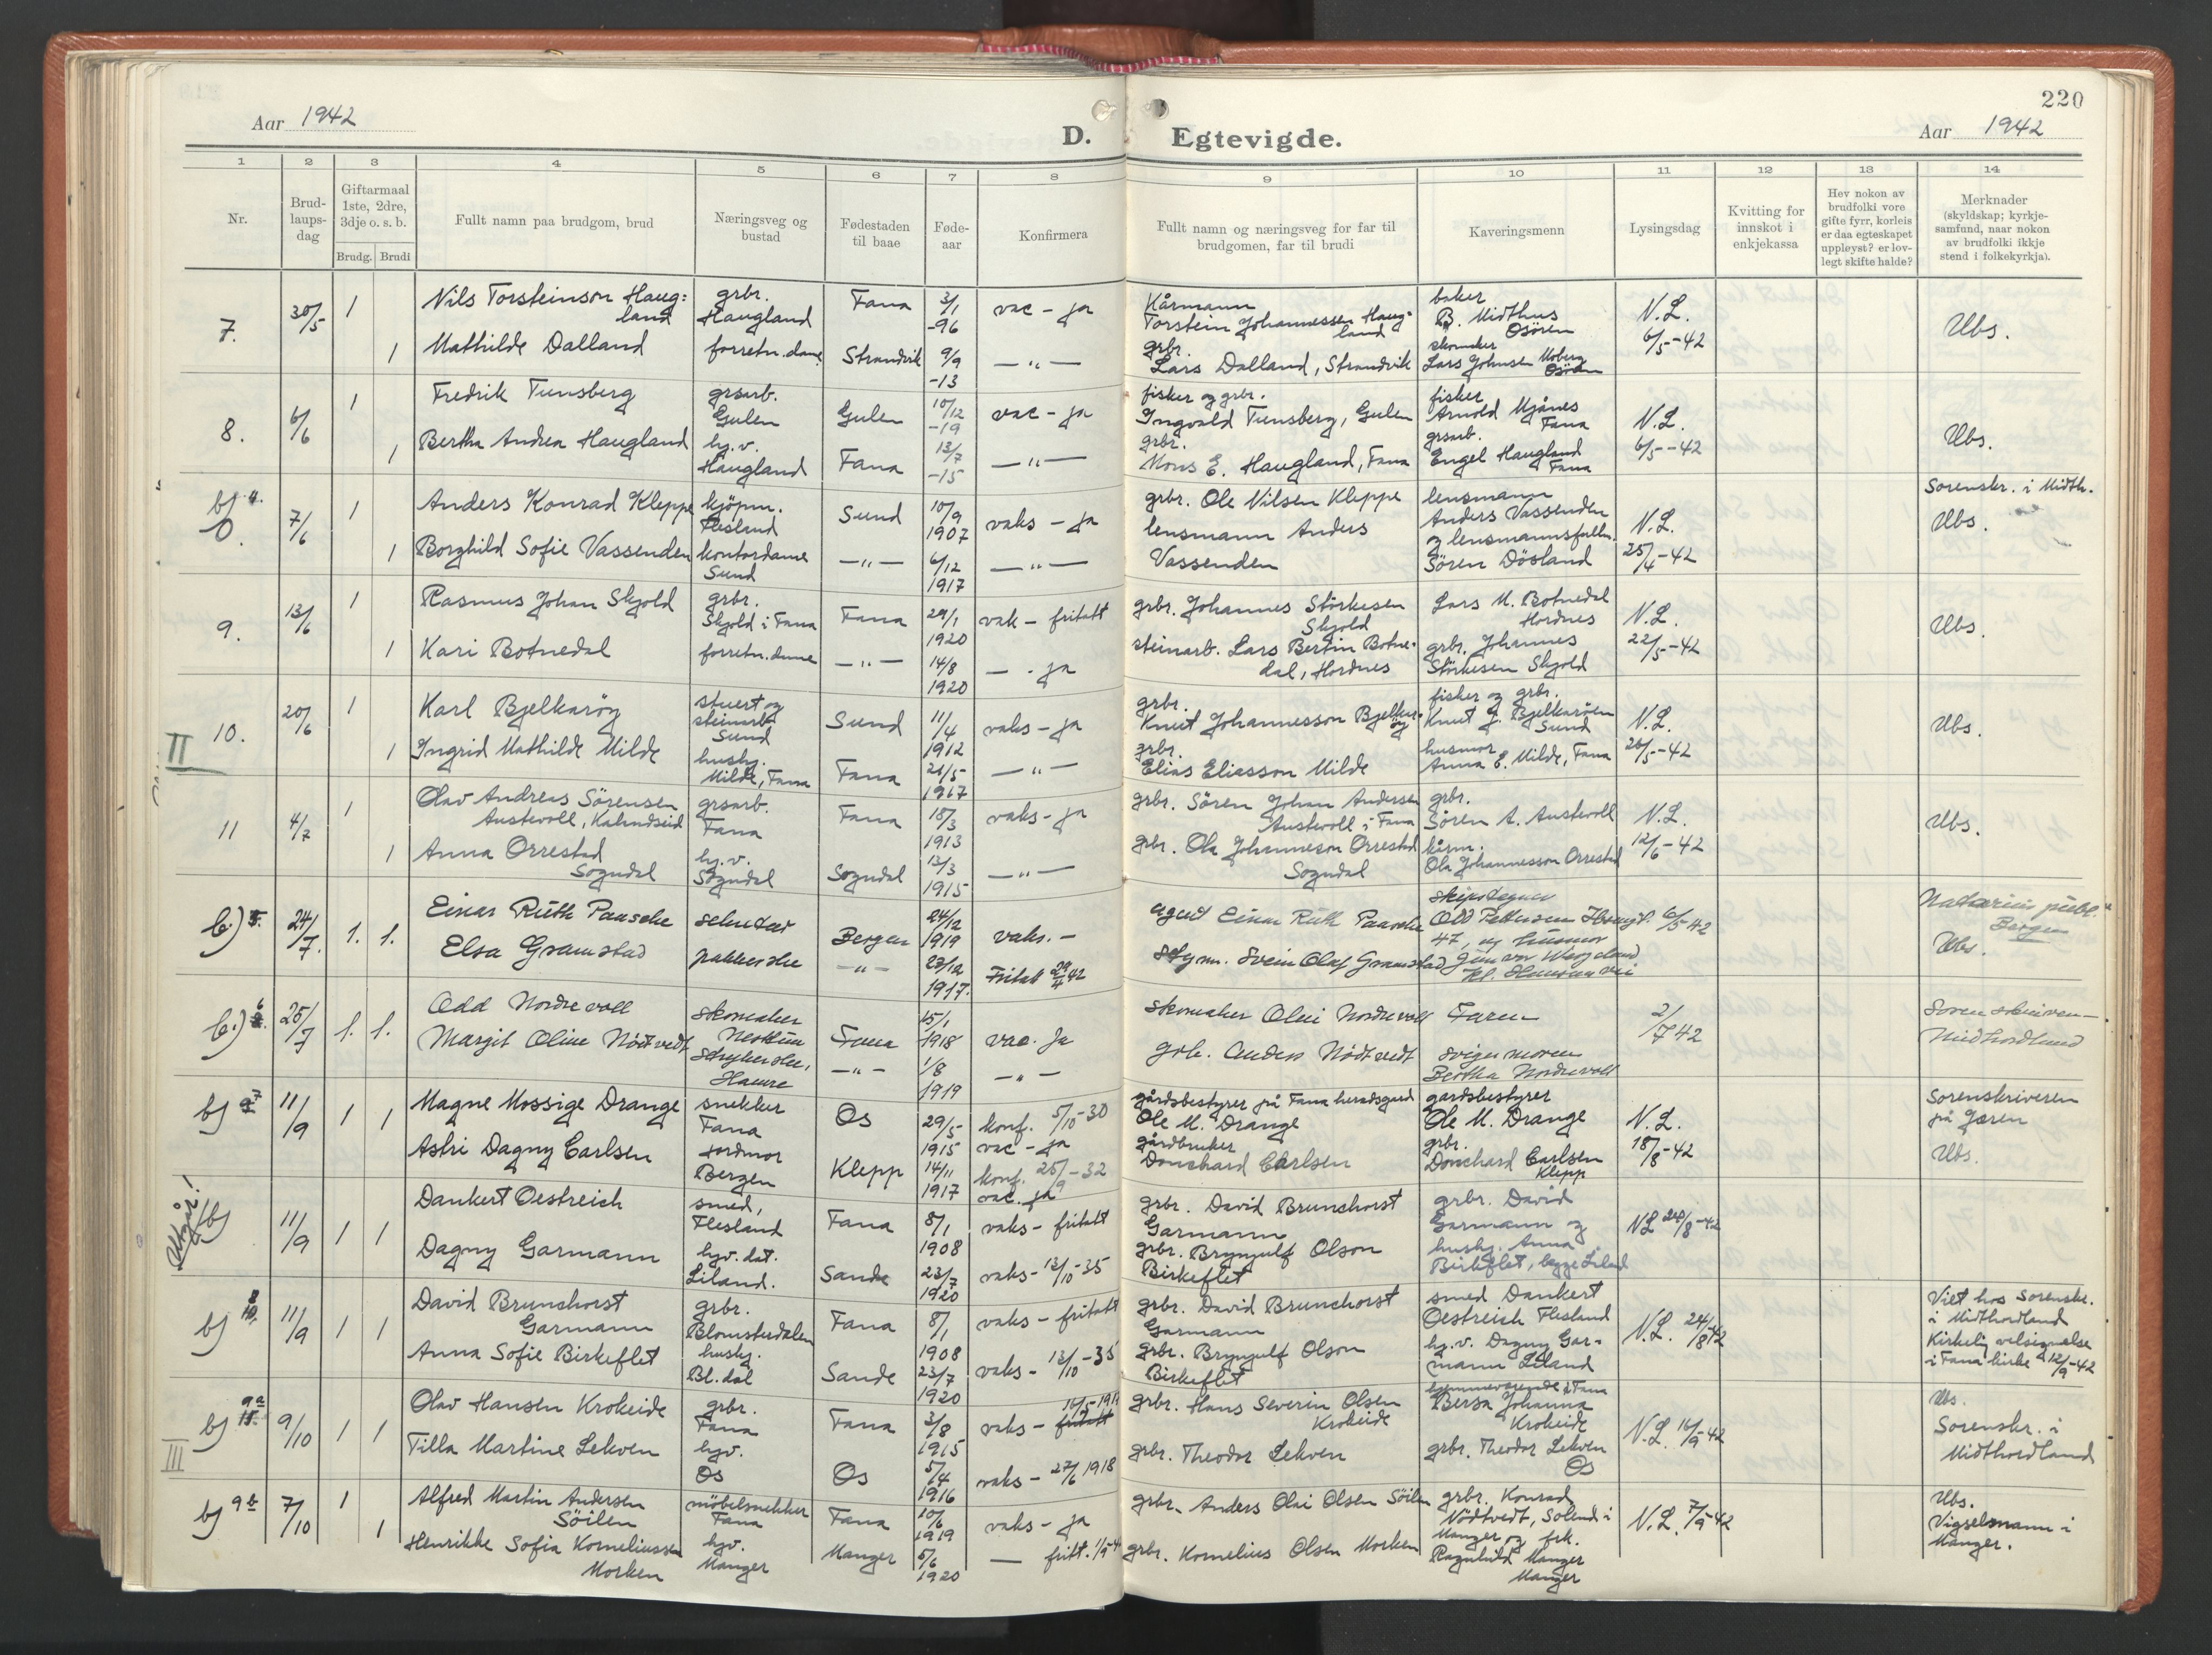 220
Aar 1942
D. Egtevigde.
Aar 1942
1 2 3 4 5 6 7 8 9 10 11 12 13 14
Nr.
Brud-
laups-
dag
Giftarmaal
1ste, 2dre,
3dje o. s. b.
Brudg. Brudi
Fullt namn paa brudgom, brud
Næringsveg og
bustad
Fødestaden
til baae
Føde-
aar
Konfirmera
Fullt namn og næringsveg for far til
brudgomen, far til brudi
Kaveringsmenn
Lysingsdag
Kvitting for
innskot i
enkjekassa
Hev nokon av
brudfolki vore
gifte fyrr, korleis
er daa egteskapet
uppløyst? er lov-
legt skifte halde?
Merknader
(skyldskap; kyrkje-
samfund, naar nokon
av brudfolki ikkje
stend i folkekyrkja).
7. 30/5 1 Nils Torsteinson Haug=
land grbr.
Haugland Fana 3/1
-96 vac - ja Kårmann
Torstein Johannessen Haug=
land baker
B. Midthus
Osøren N.L.
6/5-42 Ubs.
1 Mathilde Dalland forretn.dame Strandvik 9/9
-13 — " — grbr.
Lars Dalland, Strandvik skomaker
Lars Johnsen Moberg
Osøren
8. 6/6 1 Fredrik Tunsberg grsarb.
Gulen Gulen 10/12
-19 vac - ja fisker og grbr.
Ingvald Tunsberg, Gulen fisker
Arnold Mjånes
Fana N.L.
6/5-42 Ubs.
1 Bertha Andrea Haugland hg.v.
Haugland Fana 13/7
-15 — " — grbr.
Mons E. Haugland, Fana grsarb.
Engel Haugland
Fana
b) 4. 7/6 1 Anders Konrad Kleppe kjøpm.
Flesland Sund 10/9
1907 vaks - ja grbr. Ole Nilsen Kleppe lensmann
Anders Vassenden N.L.
25/4-42 Sorenskr. i Midth.
Ubs.
1 Borghild Sofie Vassenden kontordame
Sund — " — 6/12
1917 — " — lensmann Anders
Vassenden og lensmannsfullm.
Søren Døsland
9. 13/6 1 Rasmus Johan Skjold grbr.
Skjold i Fana Fana 29/1
1920 vak - fritatt grbr. Johannes Störkesen
Skjold Lars M. Botnedal
Hordnes N.L.
22/5-42 Ubs.
1 Kari Botnedal forretn.dame — " — 14/8
1920 — - ja steinarb. Lars Bertin Botne-
dal, Hordnes grbr. Johannes
Störkesen Skjold
II
10. 20/6 1 Karl Bjelkarøy stuert og
steinarb.
Sund Sund 11/4
1912 vaks - ja grbr.
Knut Johannesson Bjelkar-
øy fisker og grbr.
Knut J. Bjelkarøen
Sund N.L.
26/5-42 Ubs.
1 Ingrid Mathilde Milde hushj.
Milde, Fana Fana 21/5-
1917 — " — grbr.
Elias Eliasson Milde husmor
Anna E. Milde, Fana
11 4/7 1 Olav Andreas Sörensen
Austevoll, Kalandseid grsarb.
Fana Fana 18/3
1913 vaks - ja grbr. Sören Johan Andersen
Austevoll i Fana grbr.
Sören A. Austevoll N.L.
12/6-42 Ubs.
1 Anna Orrestad
Sogndal hg.v.
Sogndal Sogndal 12/3
1915 — " — grbr. Ola Johanneson Orrestad
Sogndal kårm.
Ola Johannesson Orrestad
b.) 5. 24/7. 1. 1. Einar Rüth Paasche Bergen 24/12
1919 vaks. - agent Einar Rüth Paasche 6/5 42 Bergen
Ubs.
Elsa Gramstad pakkerske — " — 23/12
1917. Fritatt 29/4 42 Svein Olaf Gramstad
b.) 6. 25/7 1. 1. Odd Nordrevoll skomaker
Nesttun Fana 15/1
1918 vac. Ja skomaker Olai Nordrevoll Faren 2/7 42 Sorenskriveren
Midhordland
Margit Oline Nödtvedt strykerske,
Haukeland — " — 1/8
1919 — " — grb. Anders Nödtvedt svigermoren
Bertha Nordrevoll
b) 7 11/9 1 1 Magne Mossige Drange snekker
Fana Os 29/5-
1915 konf. 5/10-30
vac - ja gårdsbestyrer på Fana heradsgard
Ole M. Drange gardsbestyrer
Ole M. Drange N.L.
18/8-42 Sorenskriveren
på Jæren
Ubs.
Astri Dagny Carlsen jordmor
Bergen Klepp 14/11
1917 konf. 25/9-32
vac. ja gårdbruker
Donchard Carlsen grbr.
Donchard Carlsen
Klepp
Utgår!
b) 11/9 1 1 Dankert Oestreich smed,
Flesland Fana 8/1
1908 vaks - fritatt grbr. David Brunchorst
Garmann grbr. David
Garmann og NL 24/8-42
Dagny Garmann hgv. dat.
Liland. Sande 23/7
1920 vaks - 13/10-35 grbr. Brynjulf Olson
Birkeflet hushj. Anna
Birkeflet, begge Liland
b) 8 11/9 1 1 David Brunchorst
Garmann grbr.
Blomsterdalen Fana 8/1
1908 vaks - fritatt grbr. David Brunchorst
Garmann smed Dankert
Oestreich Flesland N.L. 24/8 42 Viet hos Sorenskr.
i Midthordland
Kirkelig velsignelse
i Fana kirke 12/9-42
Anna Sofie Birkeflet hushj.
Bl.dal Sande 23/7
1920 vaks - 13/10-35 grbr. Brynjulf Olson
Birkeflet hg.v. Dagny Gar-
mann Liland
III
b) 9a 9/10 1 1 Olav Hansen Krokeide grbr.
Fana Fana 3/8
1915 vaks - fritatt grbr. Hans Severin Olsen
Krokeide hjemmeværende i Fana
Berta Johanna
Krokeide N.L. 16/9-42 Ubs.
Sorenskr. i
Midthordland
Tilla Martine Lekven hgv.
Os Os 5/4
1916 vaks - 27/6 1918 grbr. Theodor Lekven grbr. Theodor Lekven
Os
b) 9b 7/10 1 Alfred Martin Andersen
Söilen möbelsnekker
Fana Fana 20/6
1919 vaks - ja grbr. Anders Olai Olsen Söilen grbr. Konrad
Nödtvedt, Solend i N.L. 7/9-42 Ubs.
Vigselsmann i
Manger.
1 Henrikke Sofia Korneliussen
Morken hgv.
Manger Manger 5/6
1920 — fritt. grbr. Kornelius Olsen Morken Manger og frk.
Ragnhild Manger
Manger